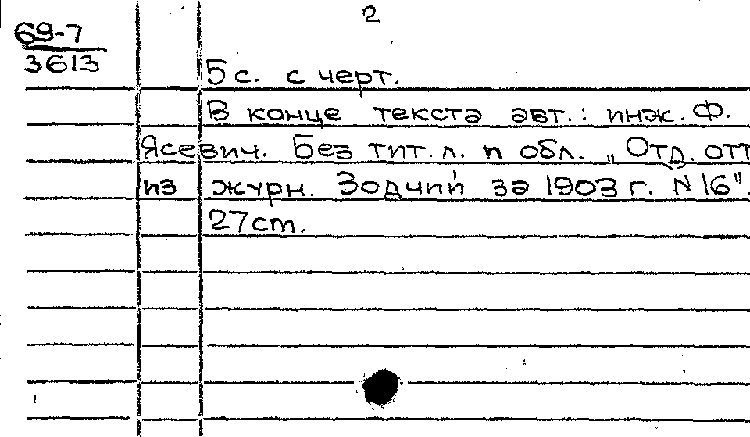 2
69-7
3613
5 с. с черт.
В конце текста авт.: инж. Ф.
Ясевич. Без тит. л. и обл. „Отд. отт
из журн. Зодчий за 1903 г. N 16".
27 cm.